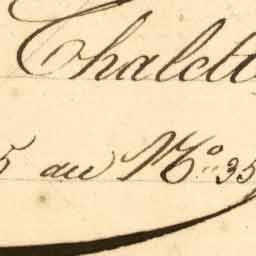 Chalett
5 au N.o 35